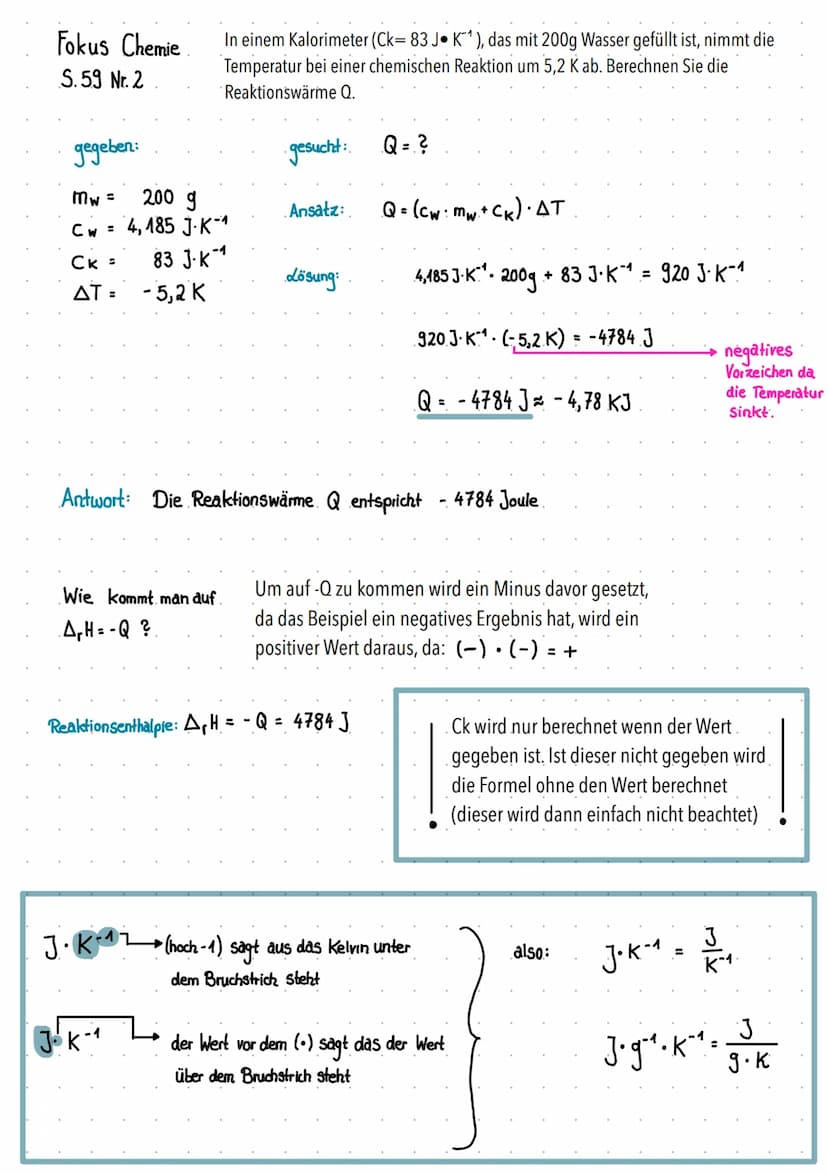 Fokus Chemie
S.59 Nr. 2
In einem Kalorimeter (Ck= 83 J• K⁻¹), das mit 200g Wasser gefüllt ist, nimmt die
Temperatur bei einer chemischen Reaktion um 5,2 K ab. Berechnen Sie die
Reaktionswärme Q.
gegeben:
mw = 200 g
Cw = 4,185 J·K⁻¹
CK = 83 J·K⁻¹
ΔT = -5,2 K
gesucht: Q = ?
Ansatz: Q = (cw · mw + CK) · ΔT
Lösung: 4,185 J·K⁻¹ · 200g + 83 J·K⁻¹ = 920 J·K⁻¹
920 J·K⁻¹ · (-5,2 K) = -4784 J
negatives
Vorzeichen da
die Temperatur
sinkt.
Q = - 4784 J ≈ - 4,78 KJ
Antwort: Die Reaktionswärme Q entspricht - 4784 Joule
Wie kommt man auf
ΔrH = -Q ?
Um auf -Q zu kommen wird ein Minus davor gesetzt,
da das Beispiel ein negatives Ergebnis hat, wird ein
positiver Wert daraus, da: (−) · (−) = +
Reaktionsenthalpie: ΔrH = - Q = 4784 J
! Ck wird nur berechnet wenn der Wert !
gegeben ist. Ist dieser nicht gegeben wird
die Formel ohne den Wert berechnet
(dieser wird dann einfach nicht beachtet)
J·K⁻¹ (hoch -1) sagt aus das Kelvin unter
dem Bruchstrich steht
J·K⁻¹ der Wert vor dem (·) sagt das der Wert
über dem Bruchstrich steht
also: J·K⁻¹ = J/K⁻¹
J·g⁻¹·K⁻¹ = J/g·K